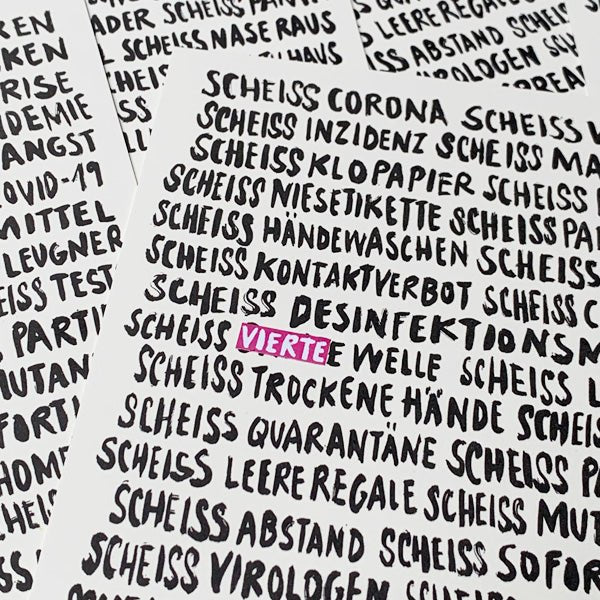 SCHEISS CORONA SCHEISS
SCHEISS INZIDENZ SCHEISS
SCHEISS KLOPAPIER SCHEISS
SCHEISS NIESETIKETTE SCHEISS
SCHEISS HÄNDEWASCHEN SCHEISS
SCHEISS KONTAKTVERBOT SCHEISS
SCHEISS DESINFEKTIONSM
SCHEISS VIERTE WELLE SCHEISS
SCHEISS TROCKENE HÄNDE SCHEISS
SCHEISS QUARANTÄNE SCHEISS
SCHEISS LEERE REGALE SCHEISS MUT
SCHEISS ABSTAND SCHEISS SOFOR
SCHEISS VIROLOGEN SCHEISS
REN
KEN
RISE
DEMIE
ANGST
COVID-19
MITTEL
LEUGNER
EISS TEST
PARTI
MUTAN
FORTI
HOME
SCHEISS
ADER SCHEISS
SCHEISS NASE RAUS
HAUS
LEERE REGALE
ISS ABSTAND SCHEISS
VIROLOGEN